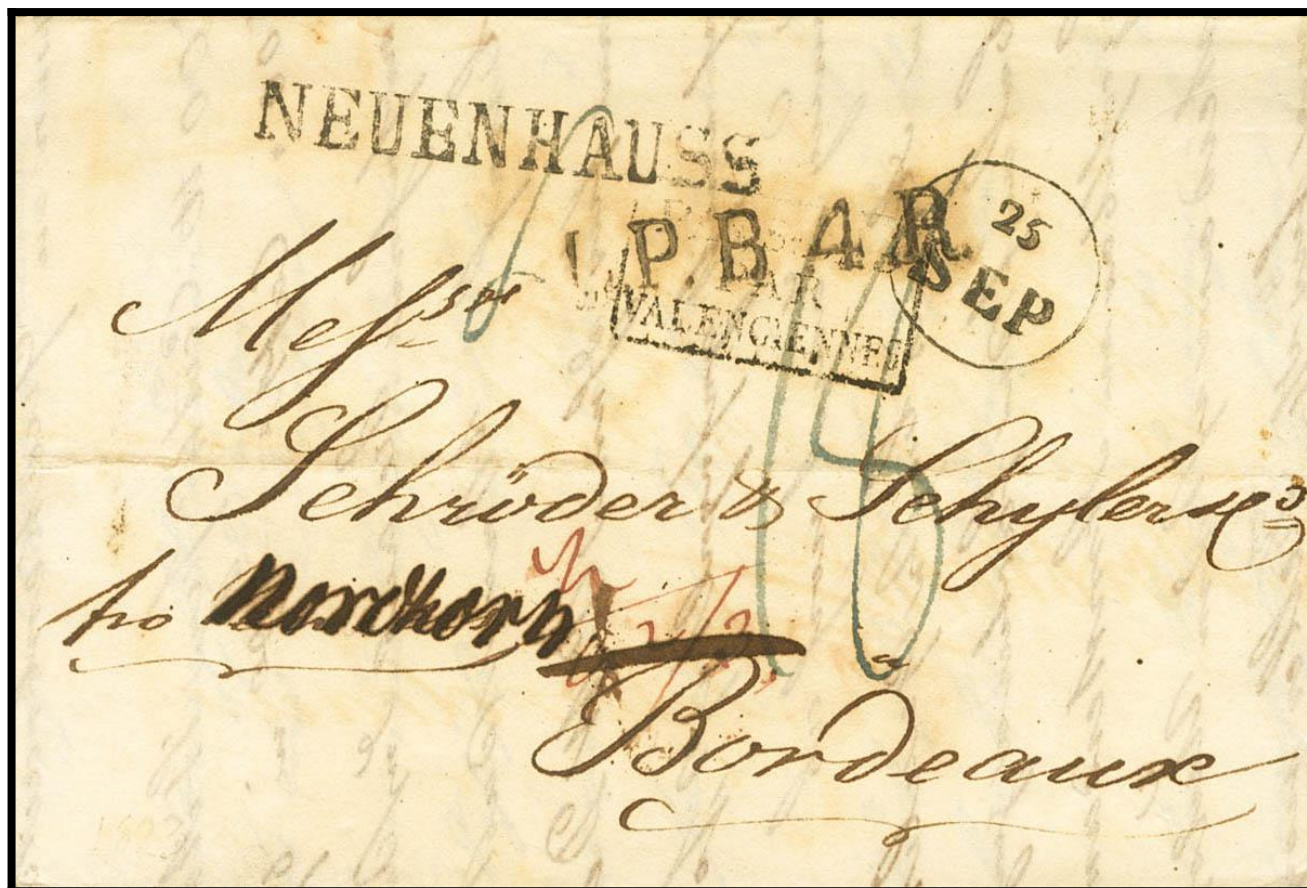 NEUENHAUSS
25
SEP
L.P.B.4.R
PAR
VALENCIENNES
Messrs
Schröder & Schyler & Co
fro Nordhorn
Bordeaux